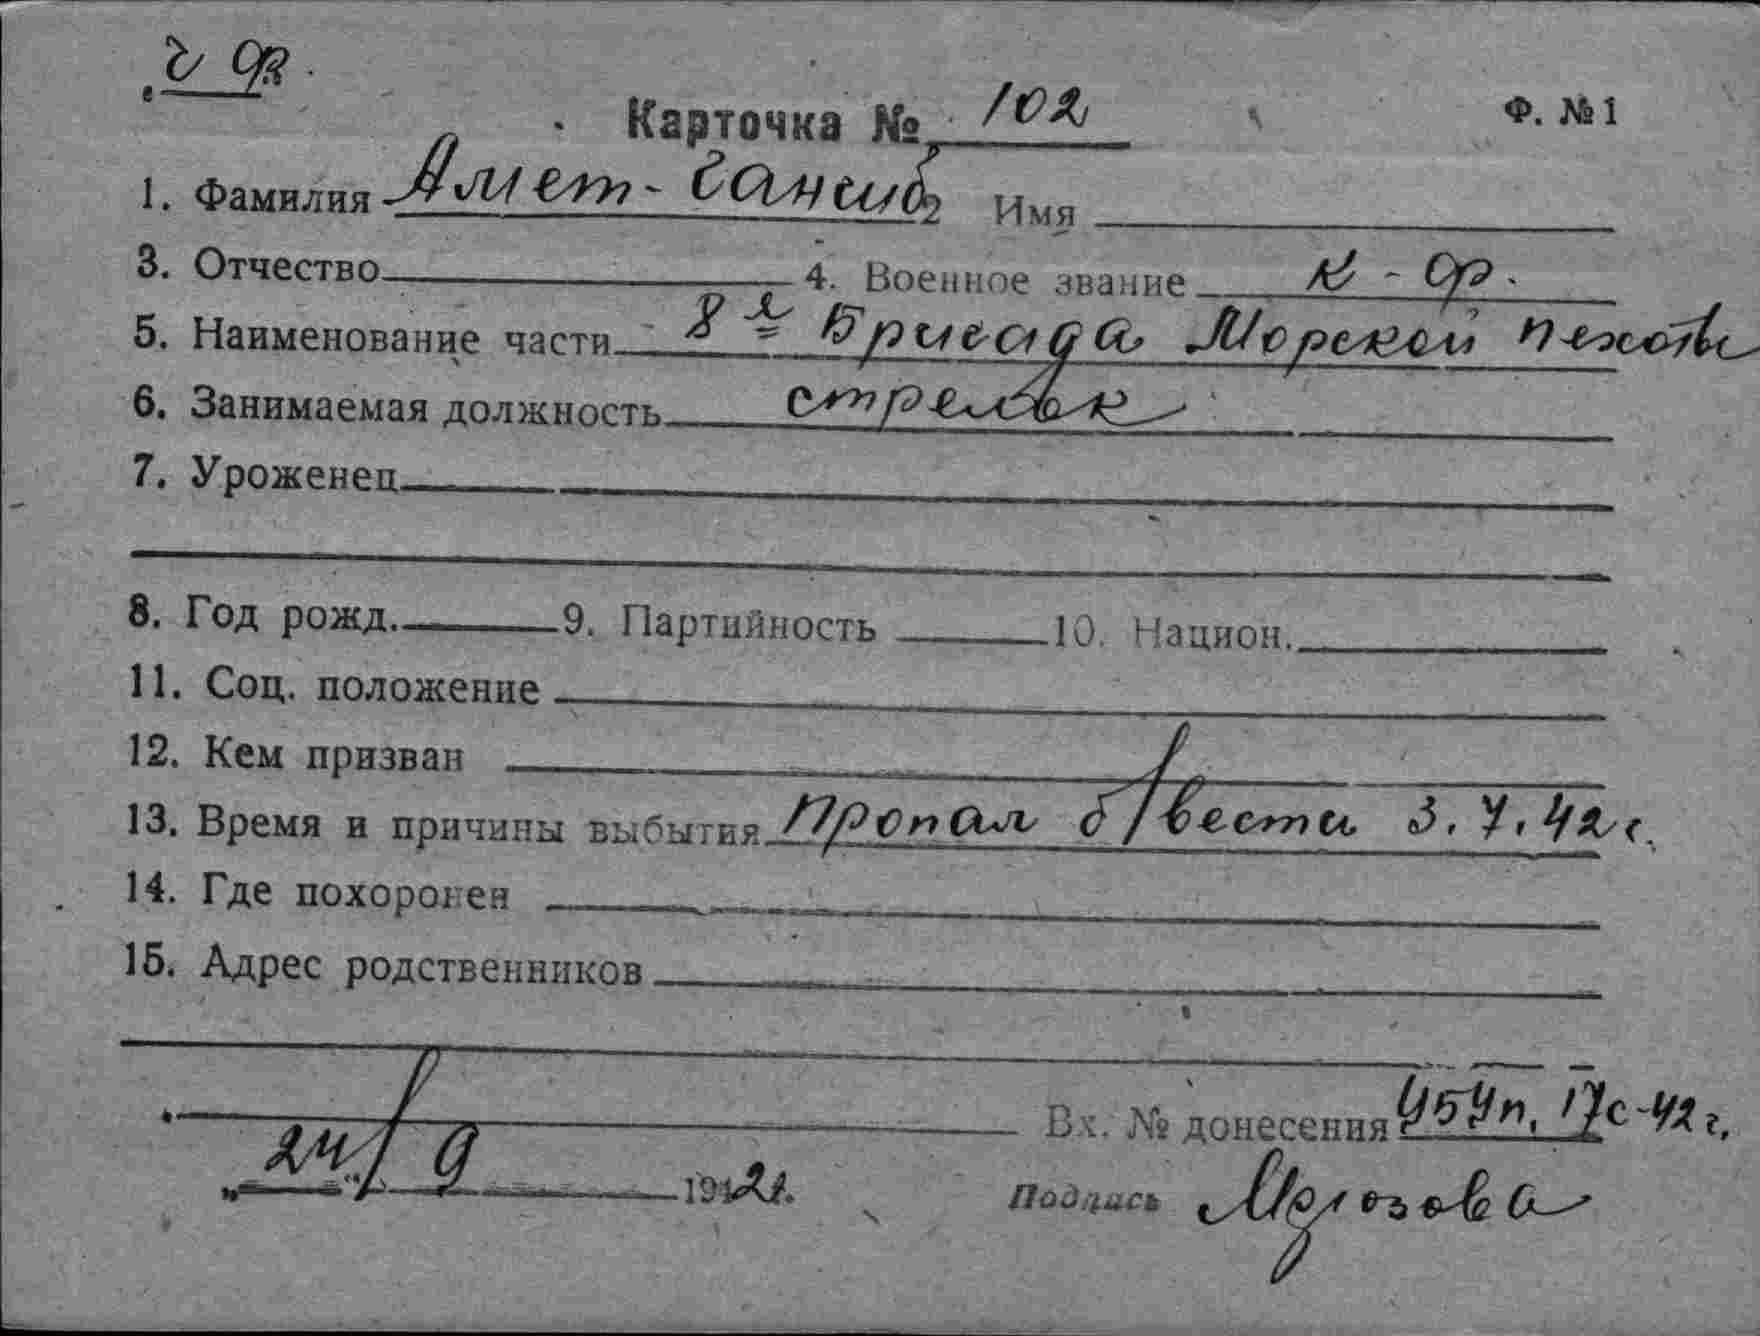 Карточка № 102 Ф. № 1
1. Фамилия Амет-Ганиб Имя
3. Отчество 4. Военное звание к-ф.
5. Наименование части 8я Бригада Морской пехоты
6. Занимаемая должность стрелок
7. Уроженец
8. Год рожд. 9. Партийность 10. Национ.
11. Соц. положение
12. Кем призван
13. Время и причины выбытия Пропал б/вести 3.7.42 г.
14. Где похоронен
15. Адрес родственников
Вх. № донесения 17с-42 г.
„24/9 1942 г.
Подпись Морозова